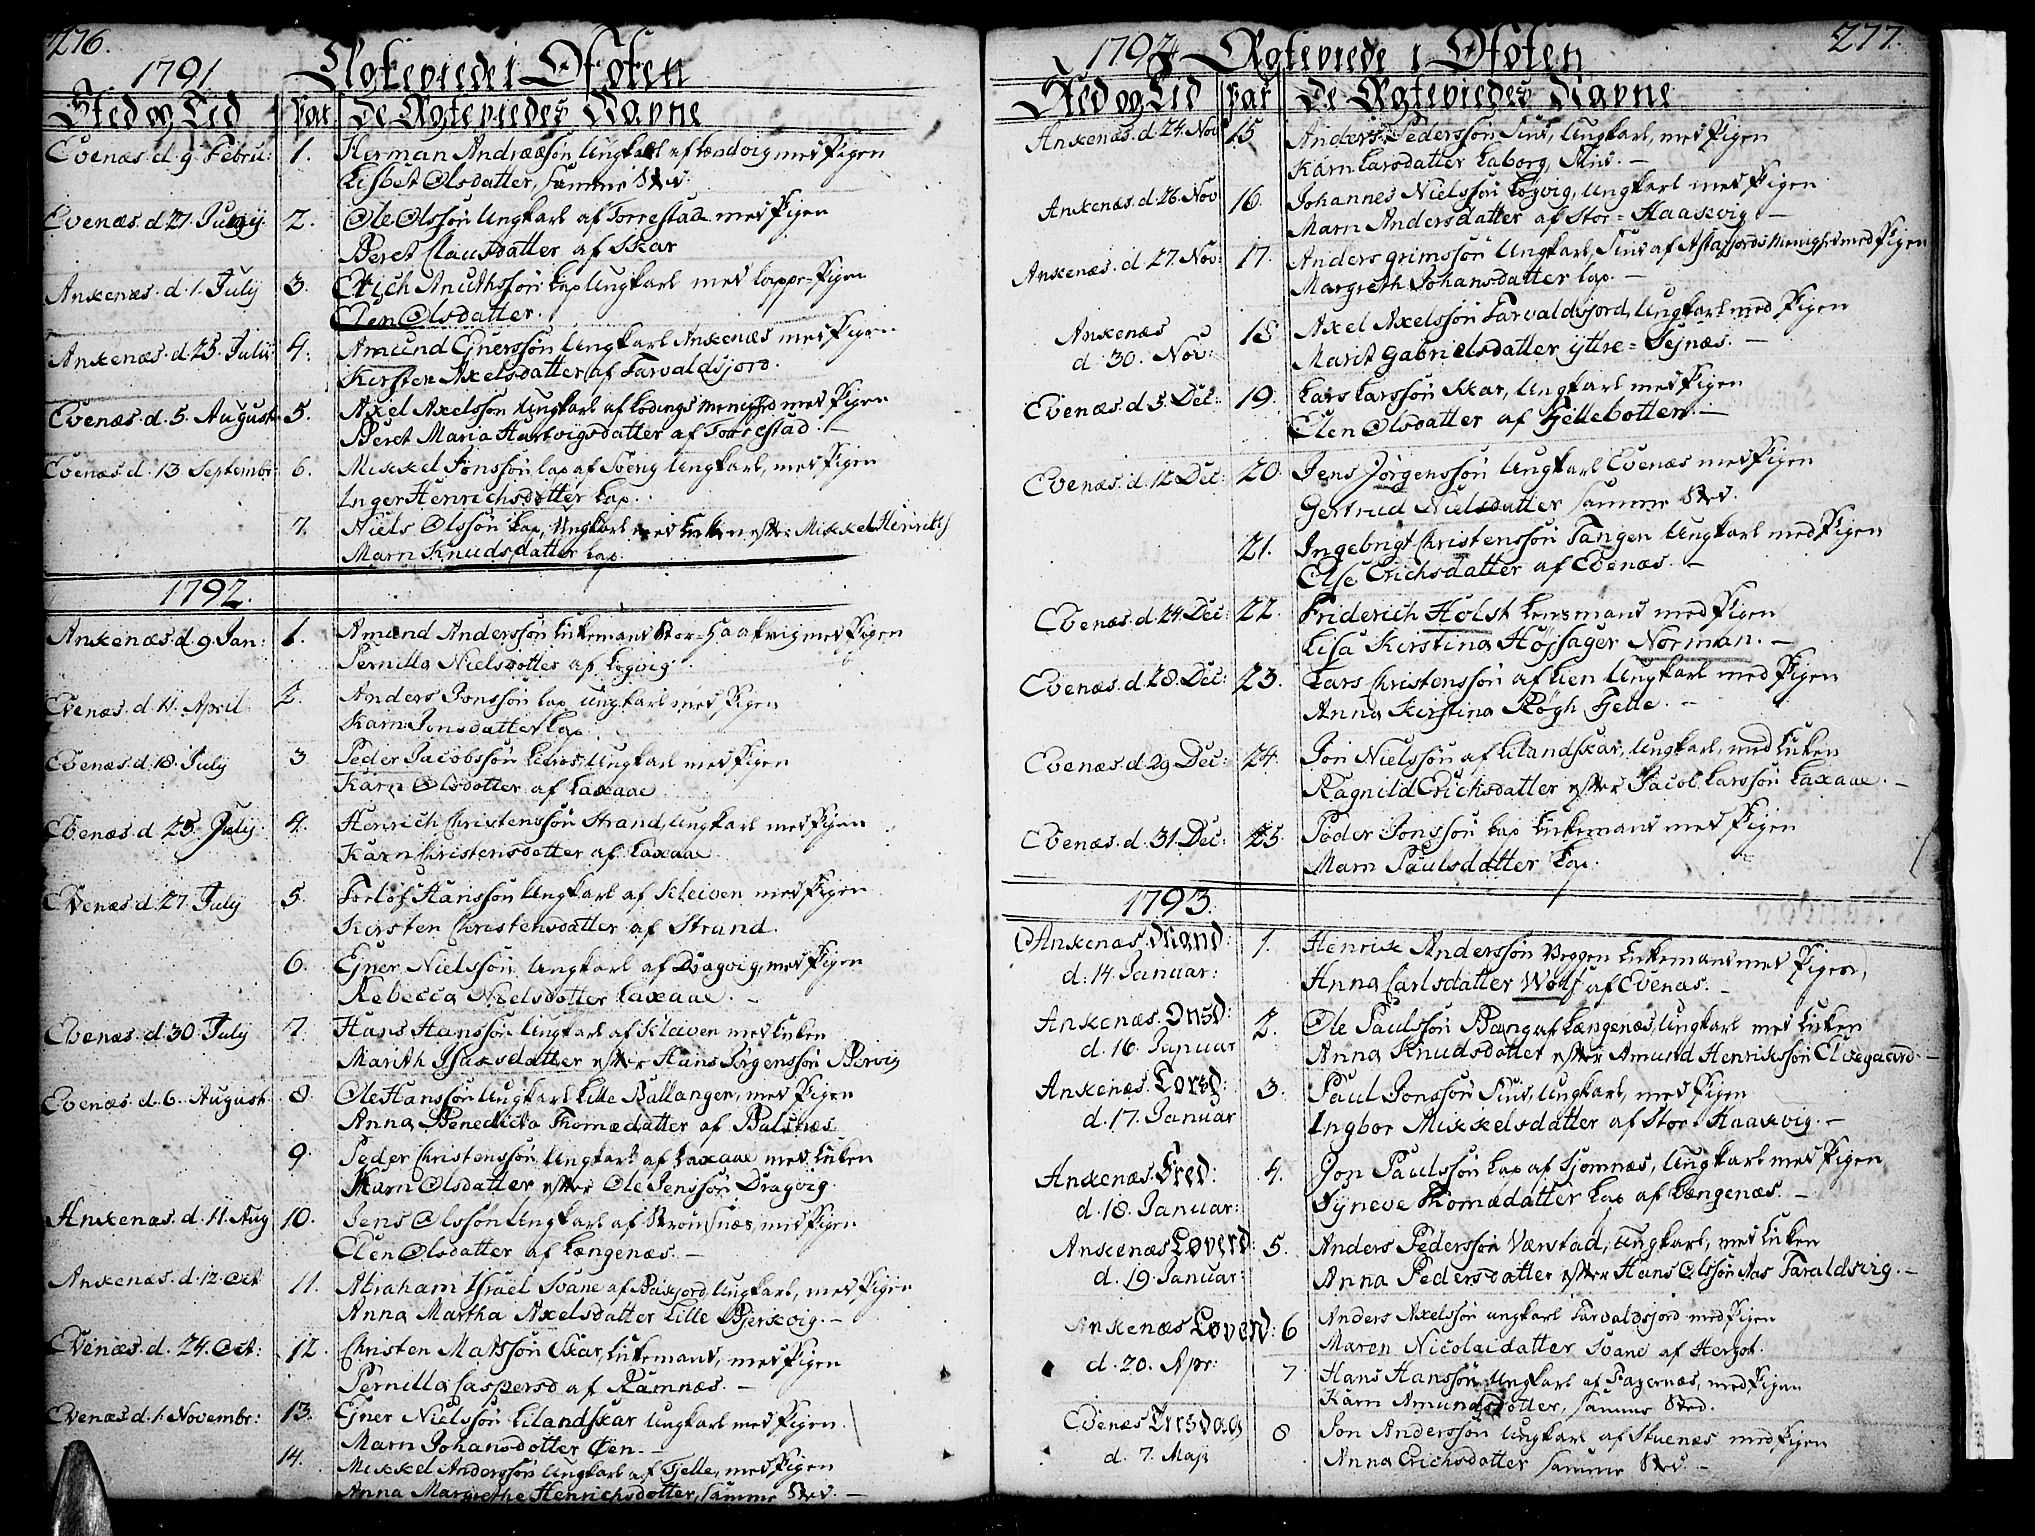 276.
1791 Ægteviede i Ofoten
Sted og Tid par De Ægteviedes Navne
Evenæs d. 9 Febru: 1. Herman Andreæsøn Ungkarl af med Pigen
Lisbet Olsdatter, samme Sted.
Evenæs d. 27. 2. Ole Olssøn Ungkarl af Forrestad med Pigen
Beret Clausdatter af Skar
Ankenæs d. 1. July 3. Erich Anuthssøn Lap Ungkarl med Lappe-Pigen
Elen Olsdatter.
Ankenæs d. 25. July 4. Amund Ejnerssøn Ungkarl Ankenæs med Pigen
Kirsten Axelsdatter af Farvaldsjord.
Evenæs d. 5. August 5. Axel Axelssøn Ungkarl af Lødings Menighed med Pigen
Beret Maria Hartvigsdatter af Forrestad. -
Evenæs d. 13 Septembr: 6. Mikkel Jonssøn Lap af Sveng Ungkarl, med Pigen
Inger Henrichsdatter Lap.
7. Niels Olssøn Lap, Ungkarl med Enken efter Mikkel Henriks
Marn Knudsdatter Lap.
1792.
Ankenæs d. 9. Jan: 1. Amund Anderssøn Enkemand Stor-Haakvig med Pigen
Pernilla Nielsdotter af Løgvig.
Evenæs d. 11. April 2. Anders Jonssøn Lap Ungkarl med Pigen
Karn Jonsdatter Lap.
Evenæs d. 18. July 3 Peder Jacobssøn Ungkarl med Pigen
Karn Olsdotter af Laxaae
Evenæs d 25. July 4. Henrich Christenssøn Strand, Ungkarl med Pigen
Karn Christensdatter af Laxaae
Evenæs d. 27. July 5. Torlof Hanssøn Ungkarl af Kleiven med Pigen
Kirsten Christensdatter af Strand.
6. Ejner Nielssøn Ungkarl af Dragvig, med Pigen
Rebecca Nielsdotter Laxaae. -
Evenæs d. 30 July 7. Hans Hanssøn Ungkarl af Kleiven med Enken
Marith Isaksdatter efter Hans Jørgenssøn Bervig
Evenæs d. 6. August. 8. Ole Hanssøn Ungkarl Lille Ballangen, med Pigen
Anna Benedicta Thomædatter af Balsnes
9. Peder Christenssøn Ungkarl af Laxaae med Enken
Karn Olsdatter efter Ole Jenssøn Dragvig.
Ankenæs d. 11. Aug 10. Jens Olssøn Ungkarl af Strømsnæs, med Pigen
Elen Olsdatter af Længenæs. -
Ankenæs d. 12. Oct 11. Abraham Israel Svane af Ungkarl, med Pigen
Anna Martha Axelsdatter Lille Bjerkvig. -
Evenæs d. 24. Oct: 12. Christen Matssøn Skar, Enkemand, med Pigen
Pernilla Caspersd af Ramnæs. -
Evenæs d. 1. Novembr: 13. Ejner Nielssøn Lilandskar Ungkarl med Pigen
Marn Johansdotter Øen. -
14. Mikkel Anderssøn Ungkarl af Fjelle, med Pigen
Anna Margrethe Henrichsdotter, samme Sted. -
277.
1792 Ægteviede i Ofoten
Sted og Tid par De Ægteviedes Navne
Ankenæs d. 24. Nov 15 Anders Pederssøn Find, Ungkarl, med Pigen
Karn Larsdatter Laborg, Find. -
Ankenæs d. 26. Nov 16. Johannes Nielssøn Løgvig, Ungkarl med Pigen
Marn Andersdatter af Stor-Haakvig -
Ankenæs d. 27. Nov: 17. Anders grimssøn Ungkarl, Find af Astafjords Menighed med Pigen
Margreth Johansdatter Lap. -
Ankenæs 18 Axel Axelssøn Farvaldsjord, Ungkarl med Pigen
d. 30. Nov: Marit Gabrielsdatter yttre-Sejnæs. -
Evenæs d. 5. Dec: 19. Lars Larssøn Skar, Ungkarl med Pigen
Elen Olsdatter af Fjellebotten. -
Evenæs d. 12 Dec: 20. Jens Jørgenssøn Ungkarl Evenæs med Pigen
Gertrud Nielsdatter samme Sted.
21. Ingebrigt Christenssøn Tangen Ungkarl med Pigen
Else Erichsdatter af Evenæs. -
Evenæs d. 24. Dec: 22. Friderich Holst Lensmand med Pigen
Lisa Kirstina Høfsager Norman. -
Evenæs. d. 28. Dec: 23. Lars Christenssøn af Lien Ungkarl med Pigen
Anna Kirstina Røgh Fjelle. -
Evenæs. d 29 Dec: 24. Jon Nielssøn af Lilandskar, Ungkarl, med Enken
Ragnild Erichsdatter efter Jacob Larssøn Laxaae. -
Evenæs. d. 31. Dec: 25 Peder Jonssøn Lap Enkemand med Pigen
Marn Paulsdatter Lap.
1793.
Ankenæs. Mand: 1. Henrik Anderssøn Veggen Enkemand med Pigen,
d. 14. Januar: Anna Carlsdatter Wolf af Evenæs. -
Ankenæs. Onsd: 2. Ole Paulssøn Bang af Længenæs, Ungkarl med Enken
d. 16. Januar Anna Knudsdatter efter Amund Henrikssøn Elvegaard. -
Ankenæs. Torsd: 3. Paul Jonssøn Find, Ungkarl, med Pigen
d. 17. Januar Ingbor Mikkelsdatter af Stor-Haakvig. -
Ankenæs. Fred: 4. Jon Paulssøn Lap af Sjomnæs, Ungkarl med Pigen
d. 18. Januar: Syneve Thomædatter Lap af Længenæs. -
Ankenæs Løverd: 5. Anders Pederssøn Værstad, Ungkarl, med Enken
d. 19. Januar: Anna Pedersdatter efter Hans Olssøn Aas Faraldsvig. -
Ankenæs Løverd: 6 Anders Axelssøn Ungkarl Farvaldsjord med Pigen
d. 20. Apr: Maren Nicolaidatter Svane af Hergot.
7 Hans Hanssøn Ungkarl af Fagernæs, med Pigen
Karn Amundsdotter, samme Sted.
Evenæs Tirsdag 8 Jon Anderssøn Ungkarl af Stuenæs med Pigen
d. 7. Maji Anna Erichsdatter samme Sted. -